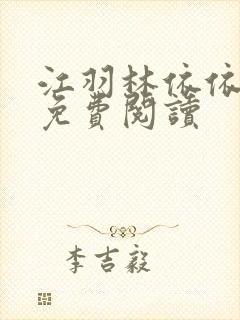 江羽林依依
免費閱讀
李吉毅